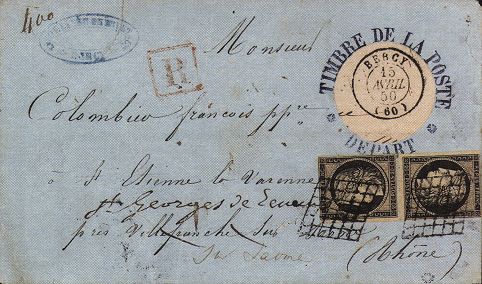 400
Monsieur
R
TIMBRE DE LA POSTE
BERCY
15
AVRIL
50
(60)
DEPART
Colombier françois pp^re
à
St Etienne la Varenne
St Georges de
près Villefranche Sur
Sur Saone (Rhône)